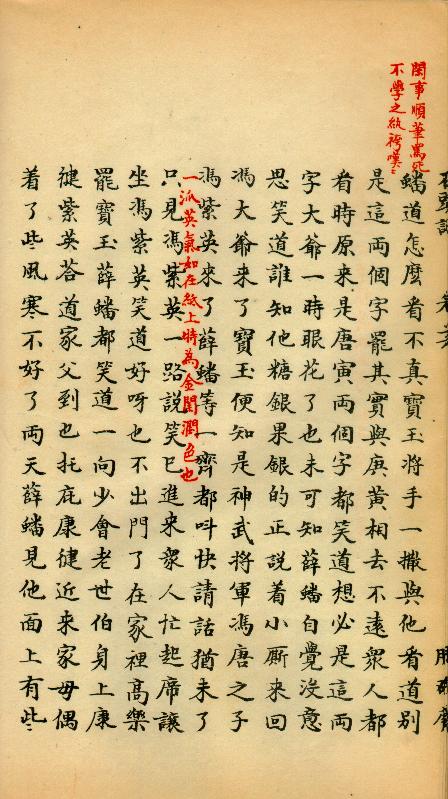 閑事順筆罵死
不學之紈袴嘆〻
蟠道怎麽看不真寶玉將手一撒與他看道別
是這兩個字罷其實與庚黃相去不遠衆人都
看時原来是唐寅兩個字都笑道想必是這兩
字大爺一時眼花了也未可知薛蟠自覺沒意
思笑道誰知他糖銀果銀的正説着小厮来回
馮大爺来了寶玉便知是神武將軍馮唐之子
馮紫英来了薛蟠等一齊都叫快請話猶未了
一派英氣如在紙上特為金閨潤色也
只見馮紫英一路説笑已進来衆人忙起席讓
坐馮紫英笑道好呀也不出門了在家裡高樂
罷寶玉薛蟠都笑道一向少會老世伯身上康
健紫英荅道家父到也托庇康健近来家母偶
着了些風寒不好了兩天薛蟠見他面上有些